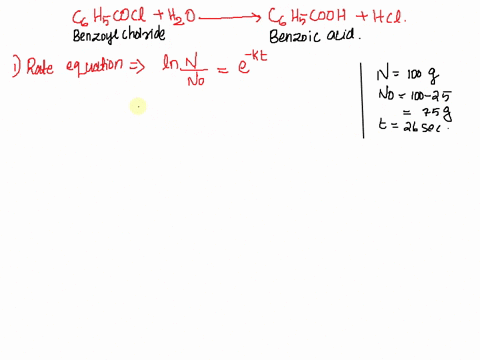 C6H5COCl + H2O ⟶ C6H5COOH + HCl.
Benzoyl chloride Benzoic acid.
1) Rate equation ⇒ ln N/N0 = e^-kt
N = 100 g
N0 = 100-25
= 75g
t = 26 sec.